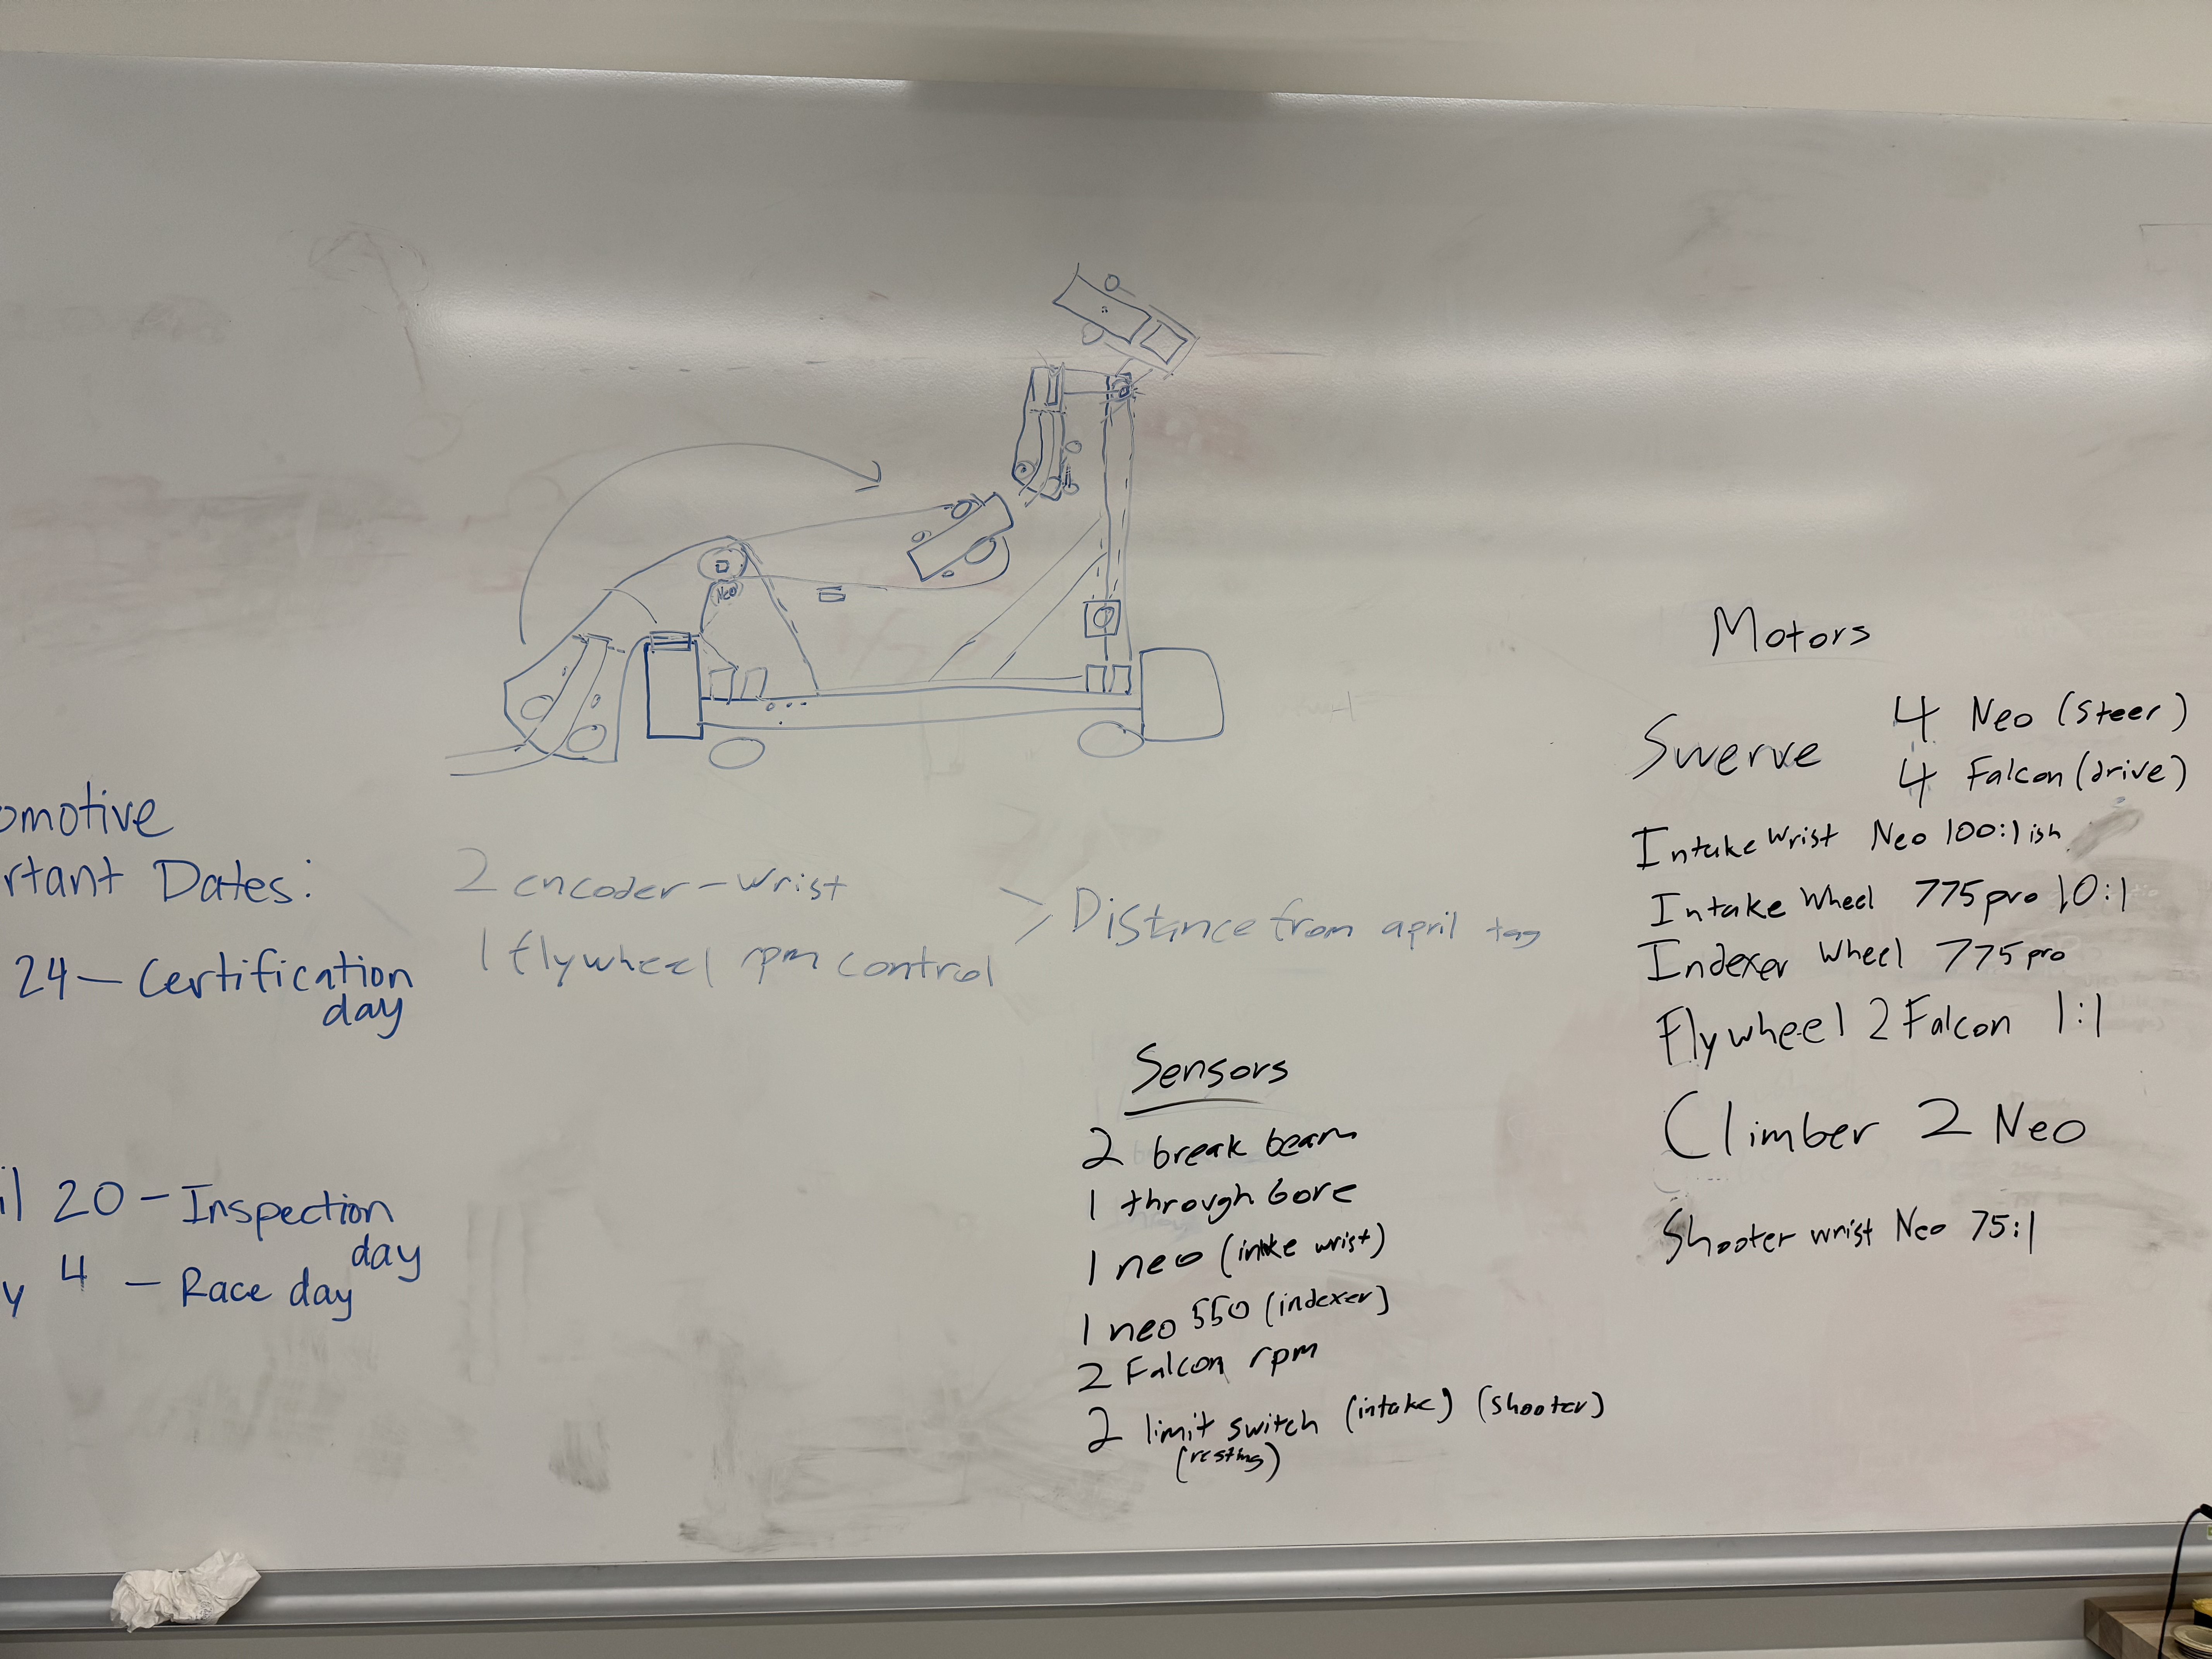 Neo
omotive
rtant Dates:
24 - Certification
day
il 20 - Inspection
day
y 4 - Race day
2 encoder - wrist
1 flywheel rpm control
> Distance from april tag
Sensors
2 break beam
1 through bore
1 neo (intke wrist)
1 neo 550 (indexer)
2 Falcon rpm
2 limit switch (intake) (shooter)
(resting)
Motors
Swerve
4 Neo (steer)
4 Falcon (drive)
Intake Wrist Neo 100:1 ish
Intake Wheel 775 pro 10:1
Indexer Wheel 775 pro
Flywheel 2 Falcon 1:1
Climber 2 Neo
Shooter wrist Neo 75:1